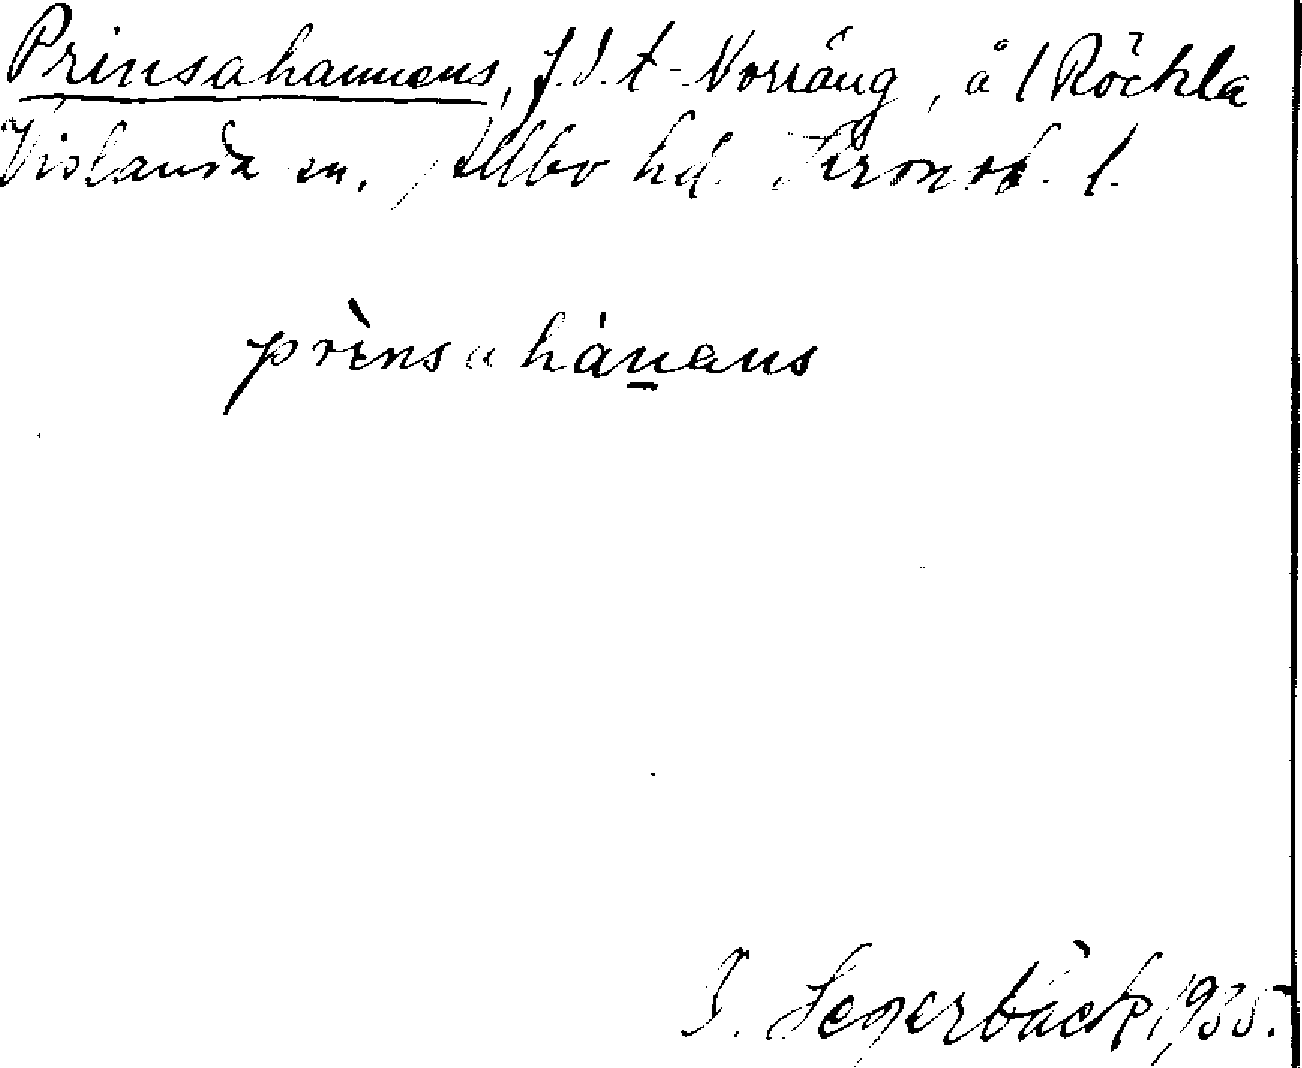 Prinsahannens, f.d.t. Norräng, å 1 Röckla
Vislanda sn, Allbo hd. Kronob. l.
prìnsahánens
J. Segerbäck, 1935.